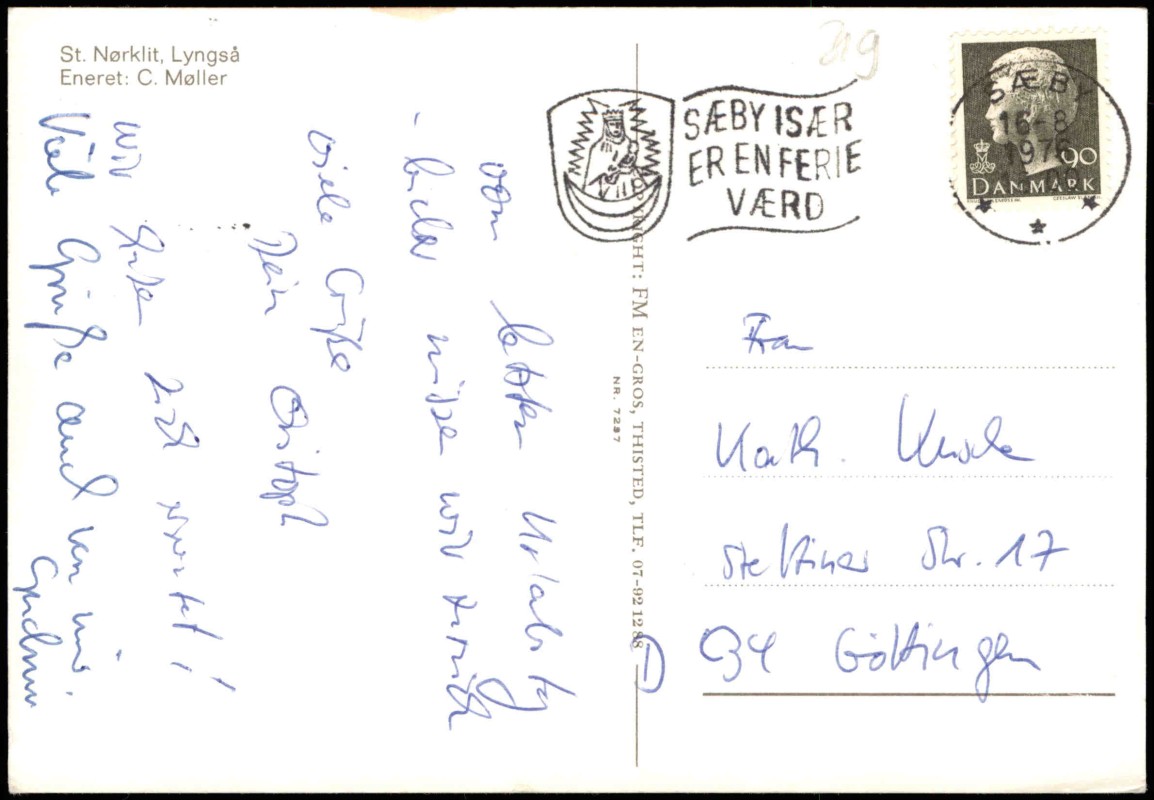 St. Nørklit, Lyngså
Eneret: C. Møller
SÆBY ISÆR
ER EN FERIE
VÆRD
SÆBY
16-8
1976
90
DANMARK
COPYRIGHT: FM EN-GROS, THISTED, TLF. 07-92 12 88
NR. 7287
vom letzten Urlaubstag
- leider müssen wir zurück
viele Grüße
Dein Christoph
wir
Viele Grüße auch von mir.
Gudrun
Frau
Kath.
Stettiner Str. 17
D 34 Göttingen